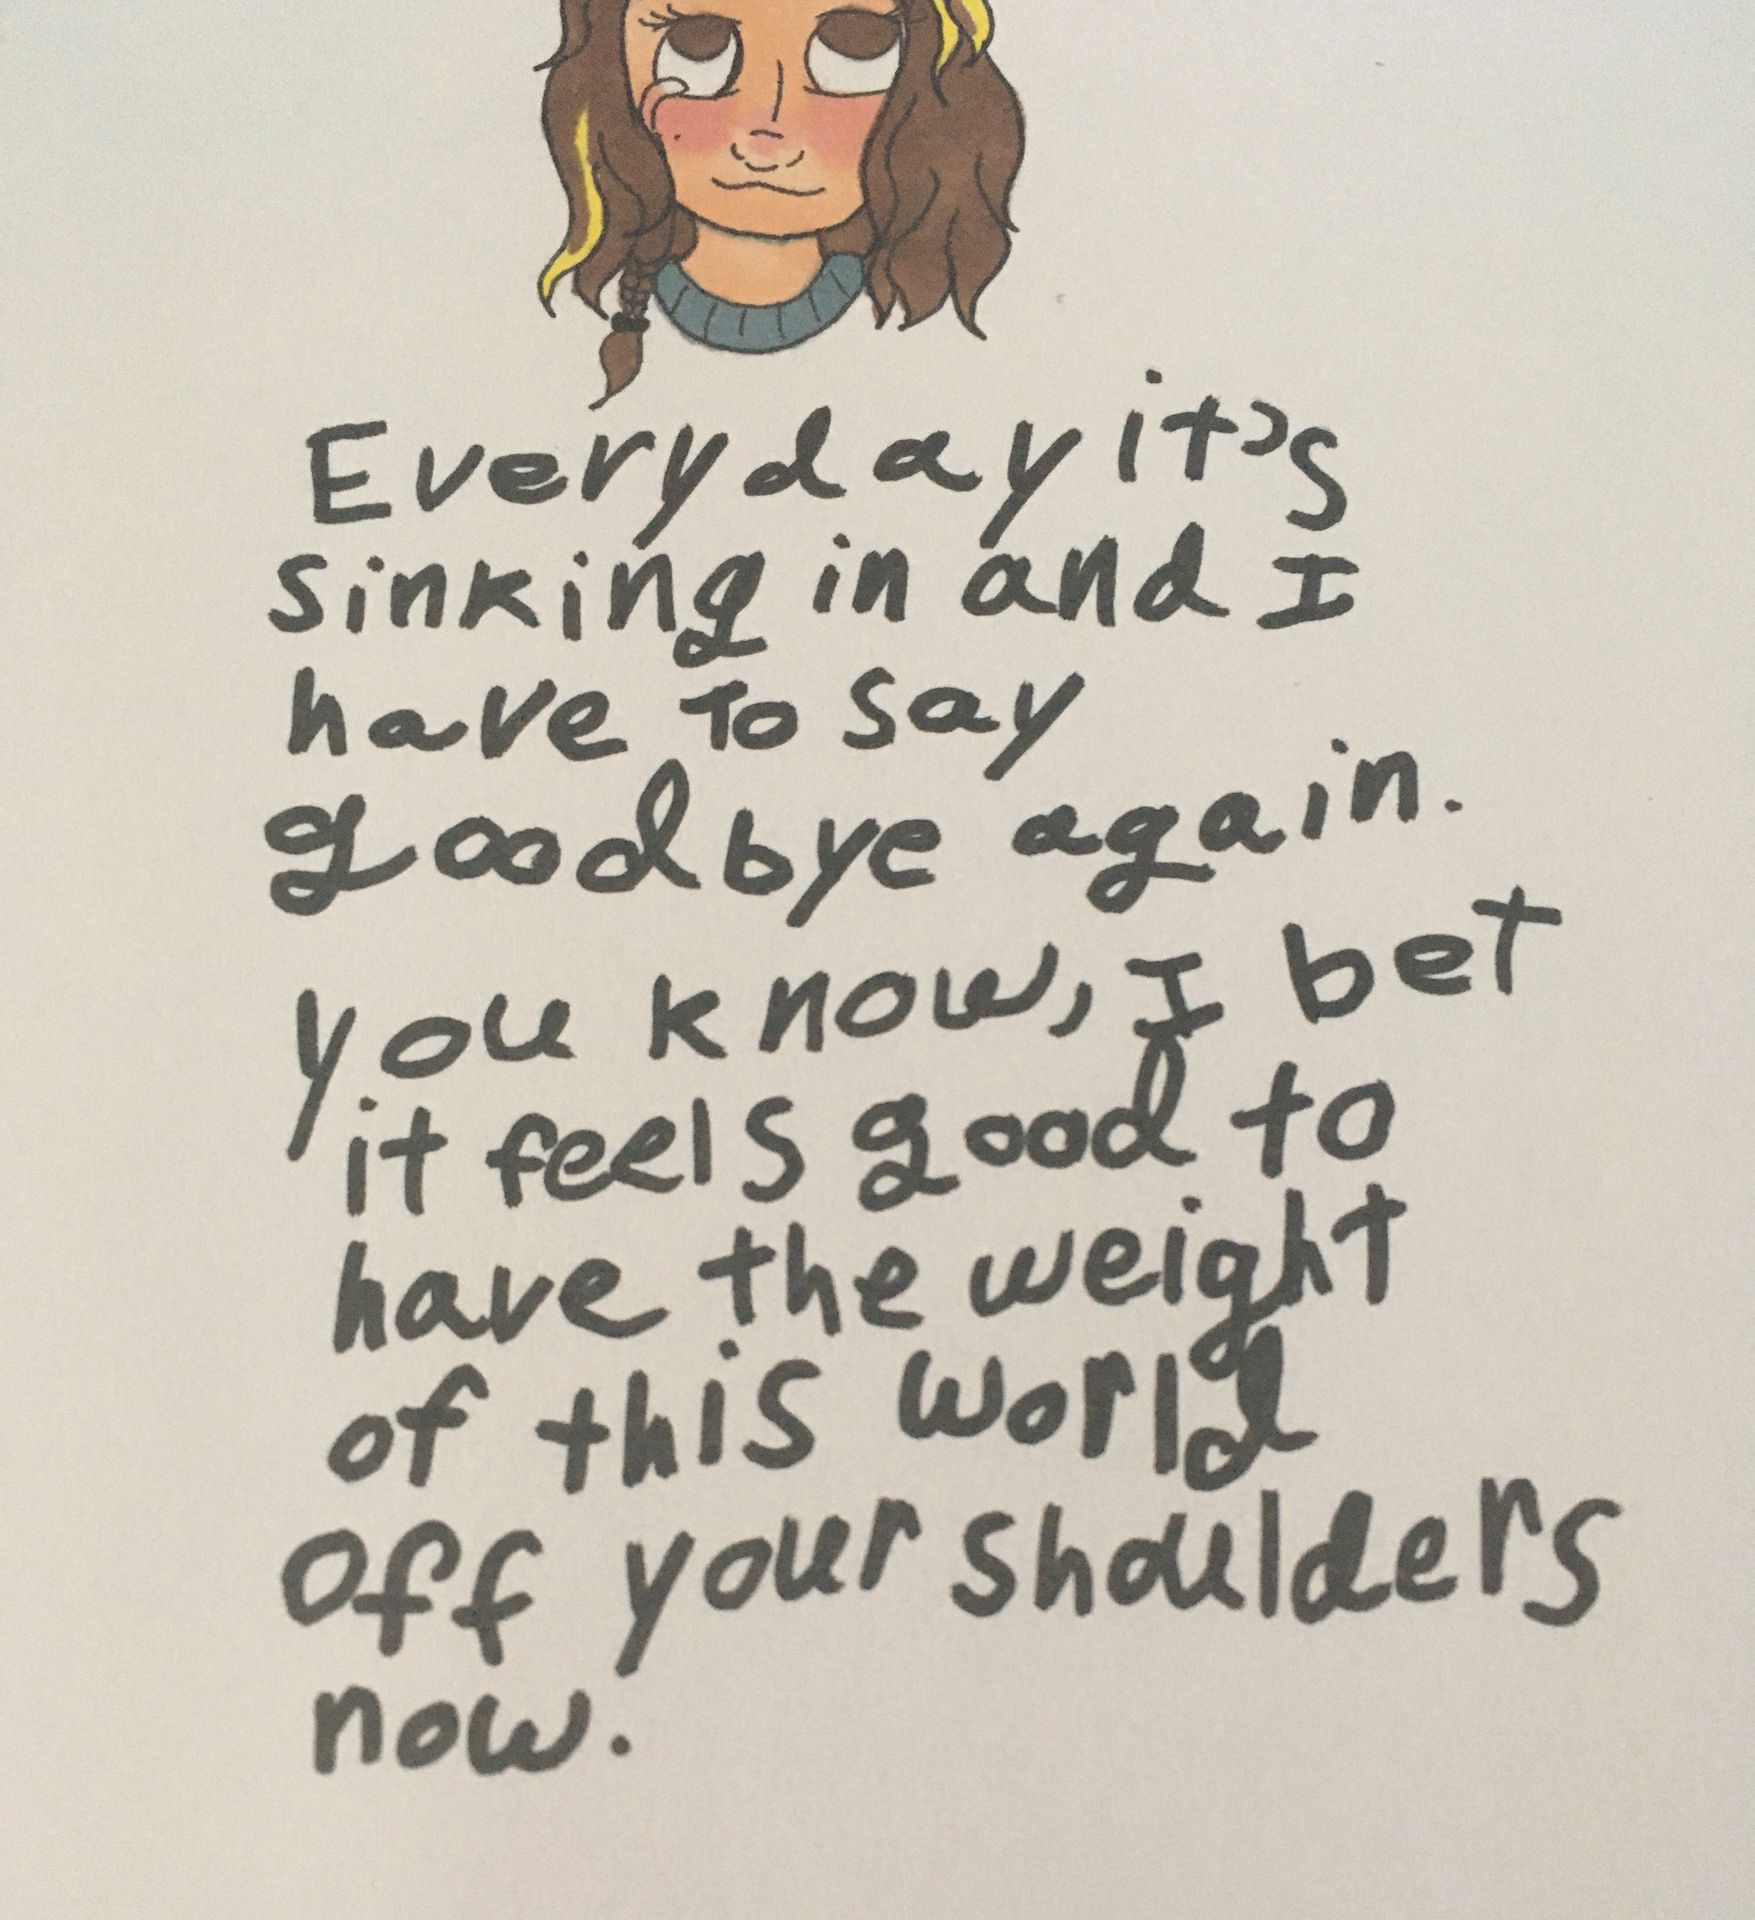 Everyday it's
sinking in and I
have To say
goodbye again.
you know, I bet
it feels good to
have the weight
of this world
off your shoulders
now.